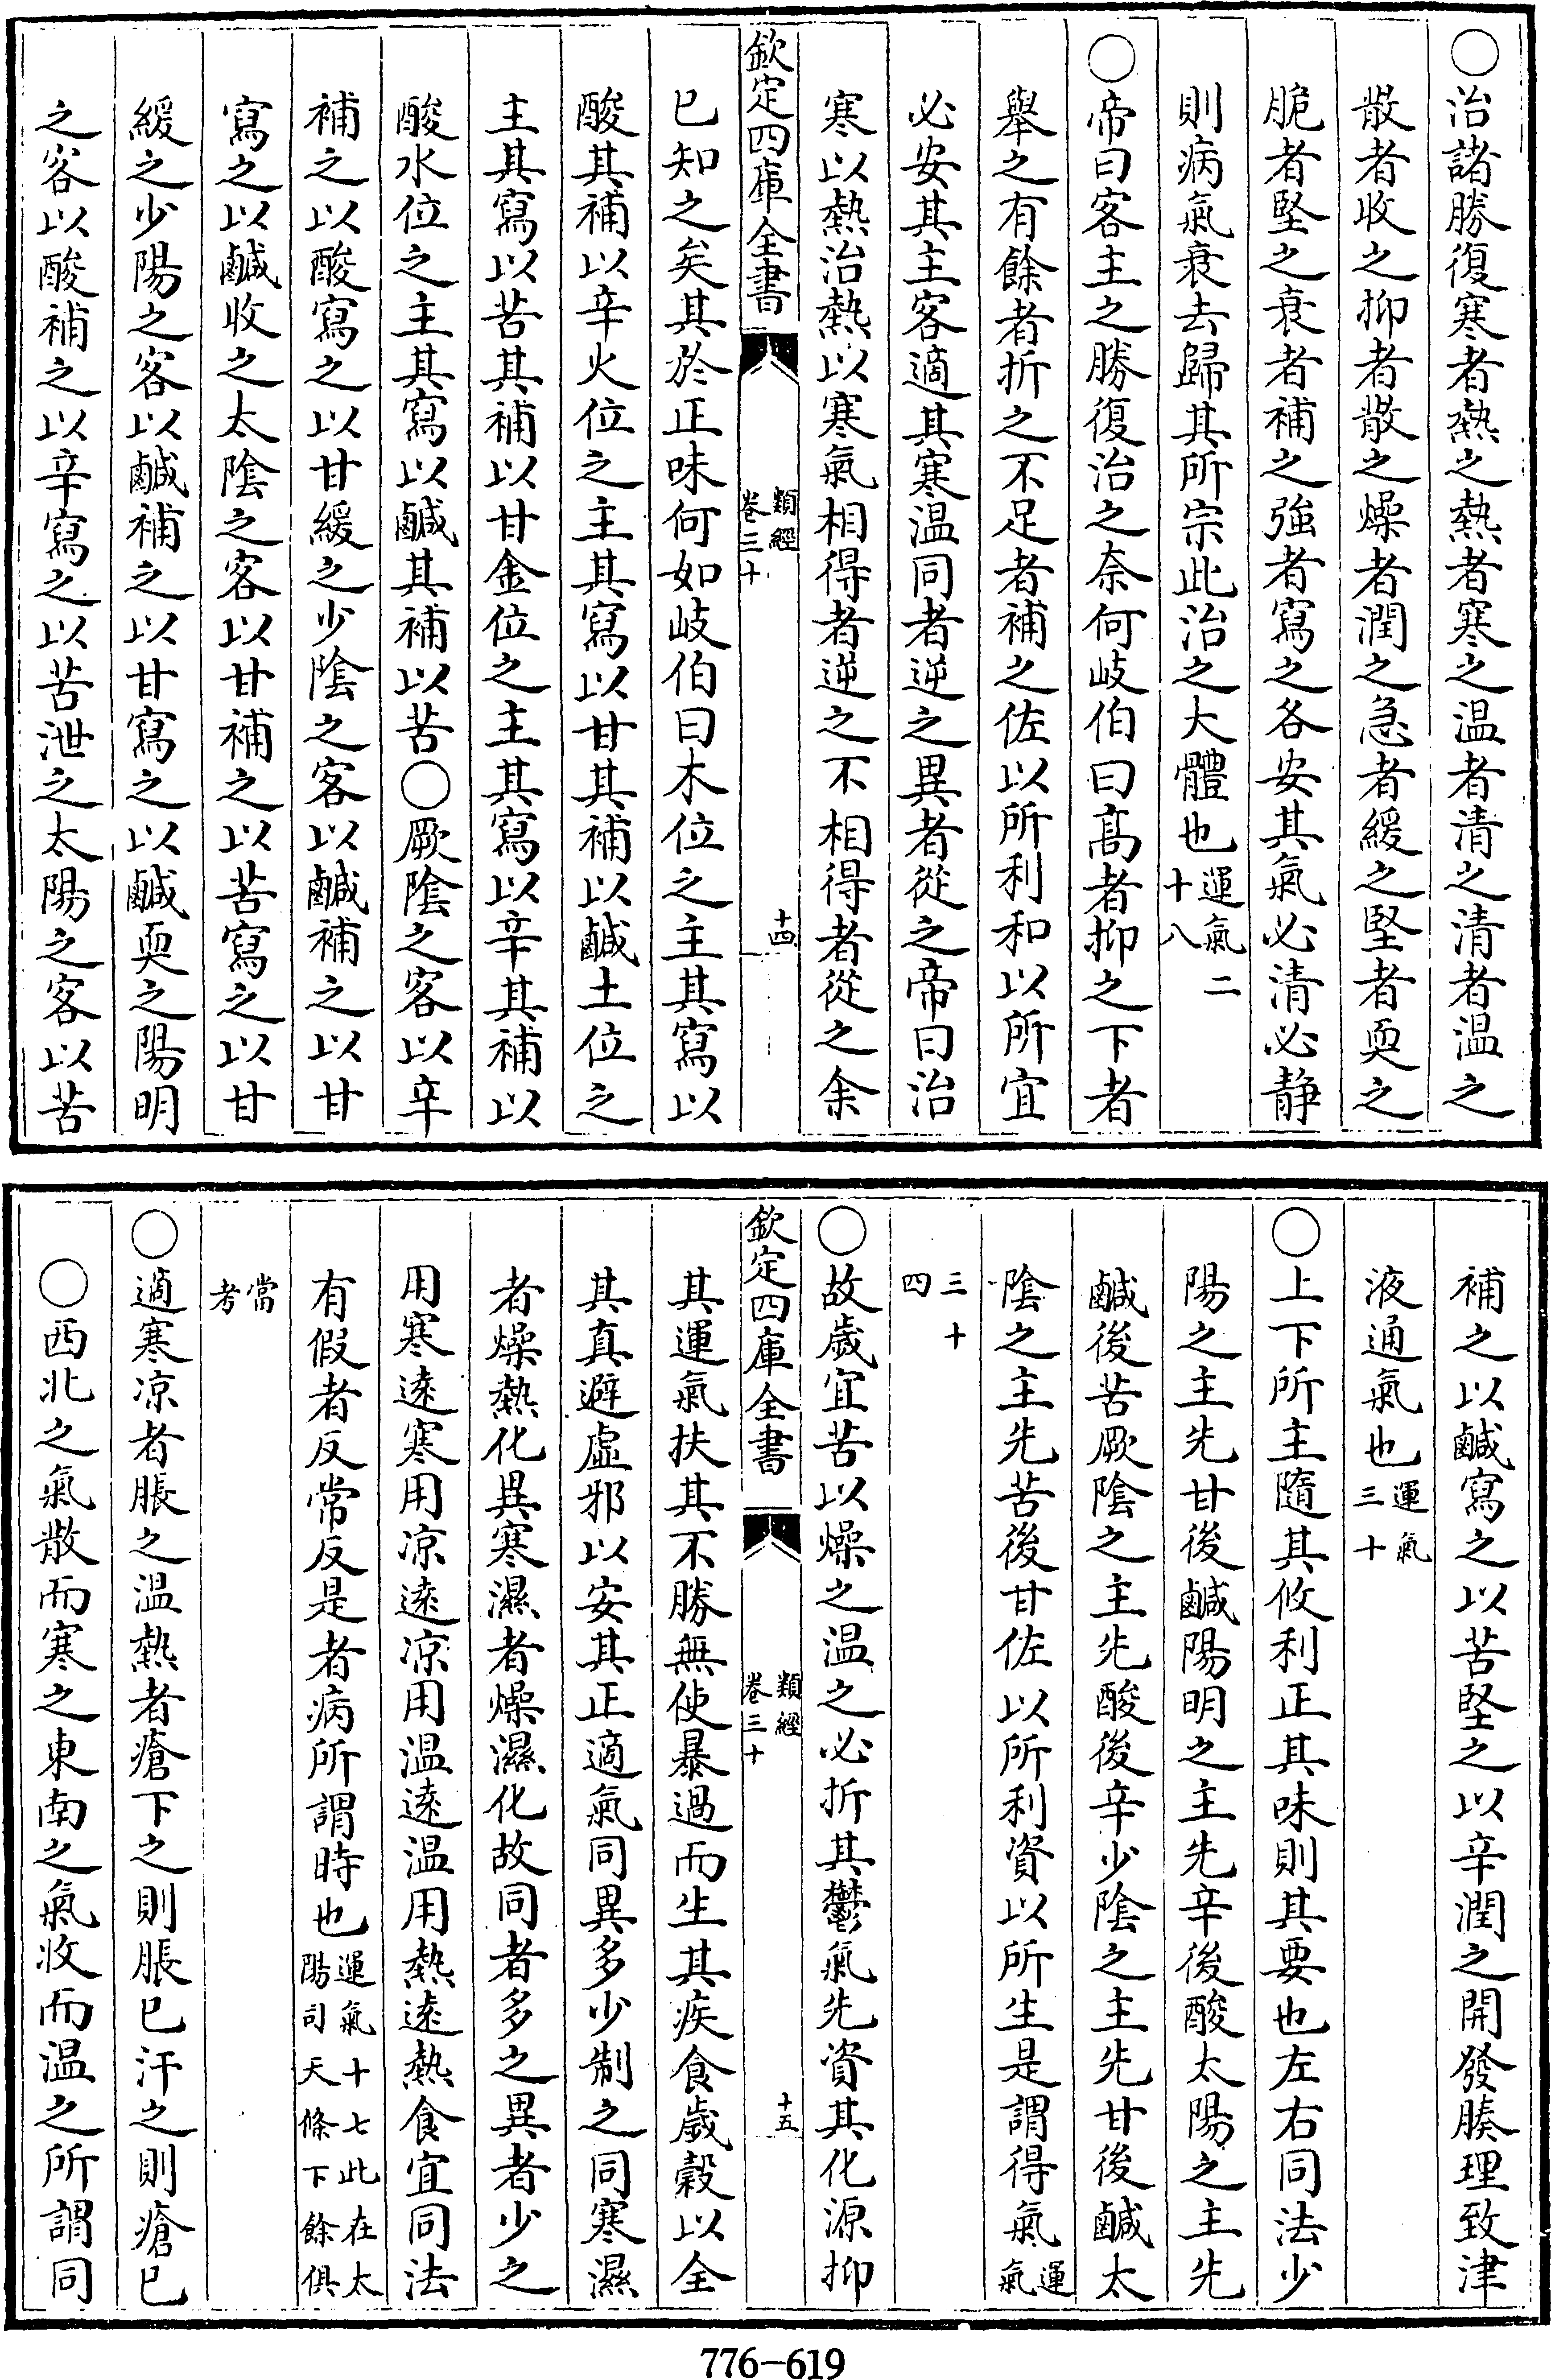 ○治諸勝復寒者熱之熱者寒之温者清之清者温之
散者收之抑者散之燥者潤之急者緩之堅者耎之
脆者堅之衰者補之強者寫之各安其氣必清必静
則病氣衰去歸其所宗此治之大體也運氣二十八
○帝曰客主之勝復治之奈何岐伯曰髙者抑之下者
舉之有餘者折之不足者補之佐以所利和以所宜
必安其主客適其寒温同者逆之異者從之帝曰治
寒以熱治熱以寒氣相得者逆之不相得者從之余
欽定四庫全書 類經卷三十 十四
已知之矣其於正味何如岐伯曰木位之主其寫以
酸其補以辛火位之主其寫以甘其補以鹹土位之
主其寫以苦其補以甘金位之主其寫以辛其補以
酸水位之主其寫以鹹其補以苦○厥陰之客以辛
補之以酸寫之以甘緩之少陰之客以鹹補之以甘
寫之以鹹收之太陰之客以甘補之以苦寫之以甘
緩之少陽之客以鹹補之以甘寫之以鹹耎之陽明
之客以酸補之以辛寫之以苦泄之太陽之客以苦
補之以鹹寫之以苦堅之以辛潤之開發腠理致津
液通氣也運氣三十
○上下所主隨其攸利正其味則其要也左右同法少
陽之主先甘後鹹陽明之主先辛後酸太陽之主先
鹹後苦厥陰之主先酸後辛少陰之主先甘後鹹太
陰之主先苦後甘佐以所利資以所生是謂得氣運氣
三十四
○故歲宜苦以燥之温之必折其鬱氣先資其化源抑
欽定四庫全書 類經卷三十 十五
其運氣扶其不勝無使暴過而生其疾食歲穀以全
其真避虛邪以安其正適氣同異多少制之同寒濕
者燥熱化異寒濕者燥濕化故同者多之異者少之
用寒逺寒用凉逺凉用温逺温用熱逺熱食宜同法
有假者反常反是者病所謂時也運氣十七此在太陽司天條下餘俱
當考
○適寒凉者脹之温熱者瘡下之則脹已汗之則瘡已
○西北之氣散而寒之東南之氣收而温之所謂同
776-619